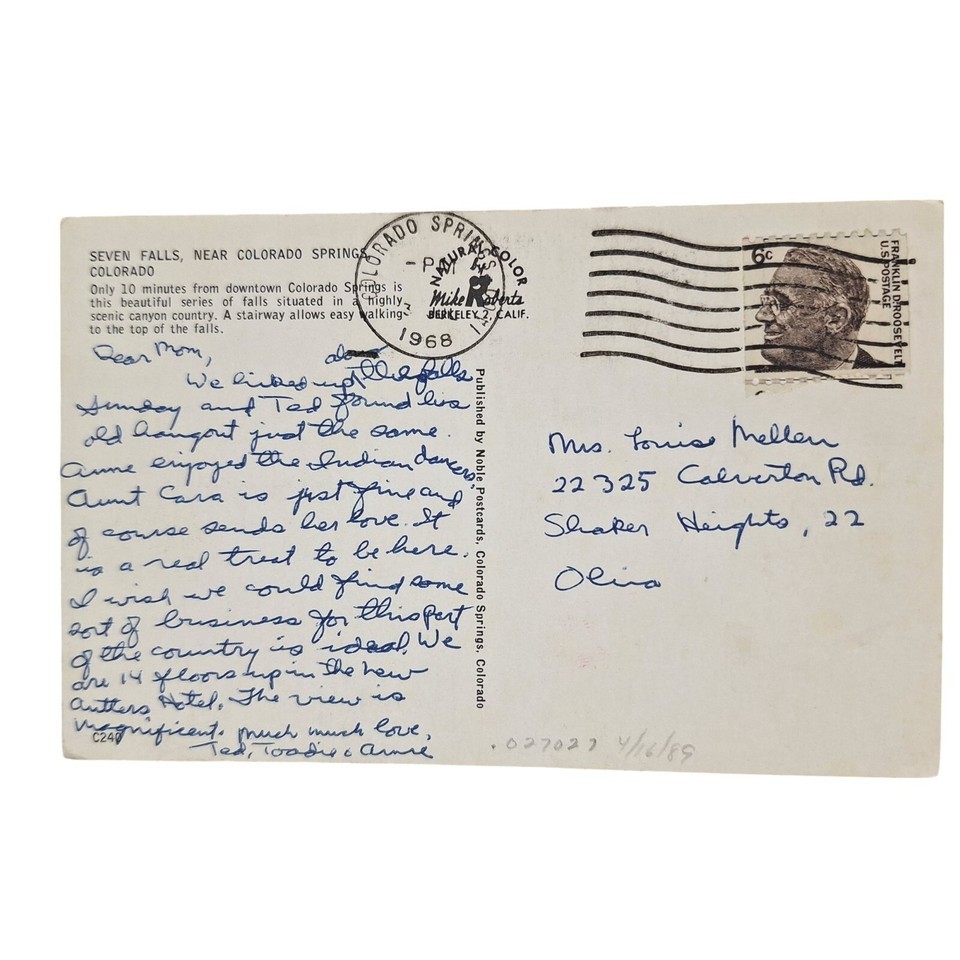 SEVEN FALLS, NEAR COLORADO SPRINGS,
COLORADO
Only 10 minutes from downtown Colorado Springs is
this beautiful series of falls situated in a highly
scenic canyon country. A stairway allows easy walking
to the top of the falls.
COLORADO SPRINGS
PM
1968
NATURAL COLOR
by
Mike Roberts
BERKELEY 2, CALIF.
6c
FRANKLIN D. ROOSEVELT
U.S. POSTAGE
Dear Mom,
We hiked up the falls
Sunday and Ted found his
old hangout just the same.
Anne enjoyed the Indian dancers,
Aunt Cara is just fine and
of course sends her love. It
is a real treat to be here.
I wish we could find some
sort of business for this part
of the country is ideal. We
are 14 floors up in the new
Antlers Hotel. The view is
magnificent. Much much love,
Ted, Toadie & Anne
C240
Published by Noble Postcards, Colorado Springs, Colorado
Mrs. Louise Mellen
22325 Calverton Rd.
Shaker Heights, 22
Ohio
.027027 4/16/89